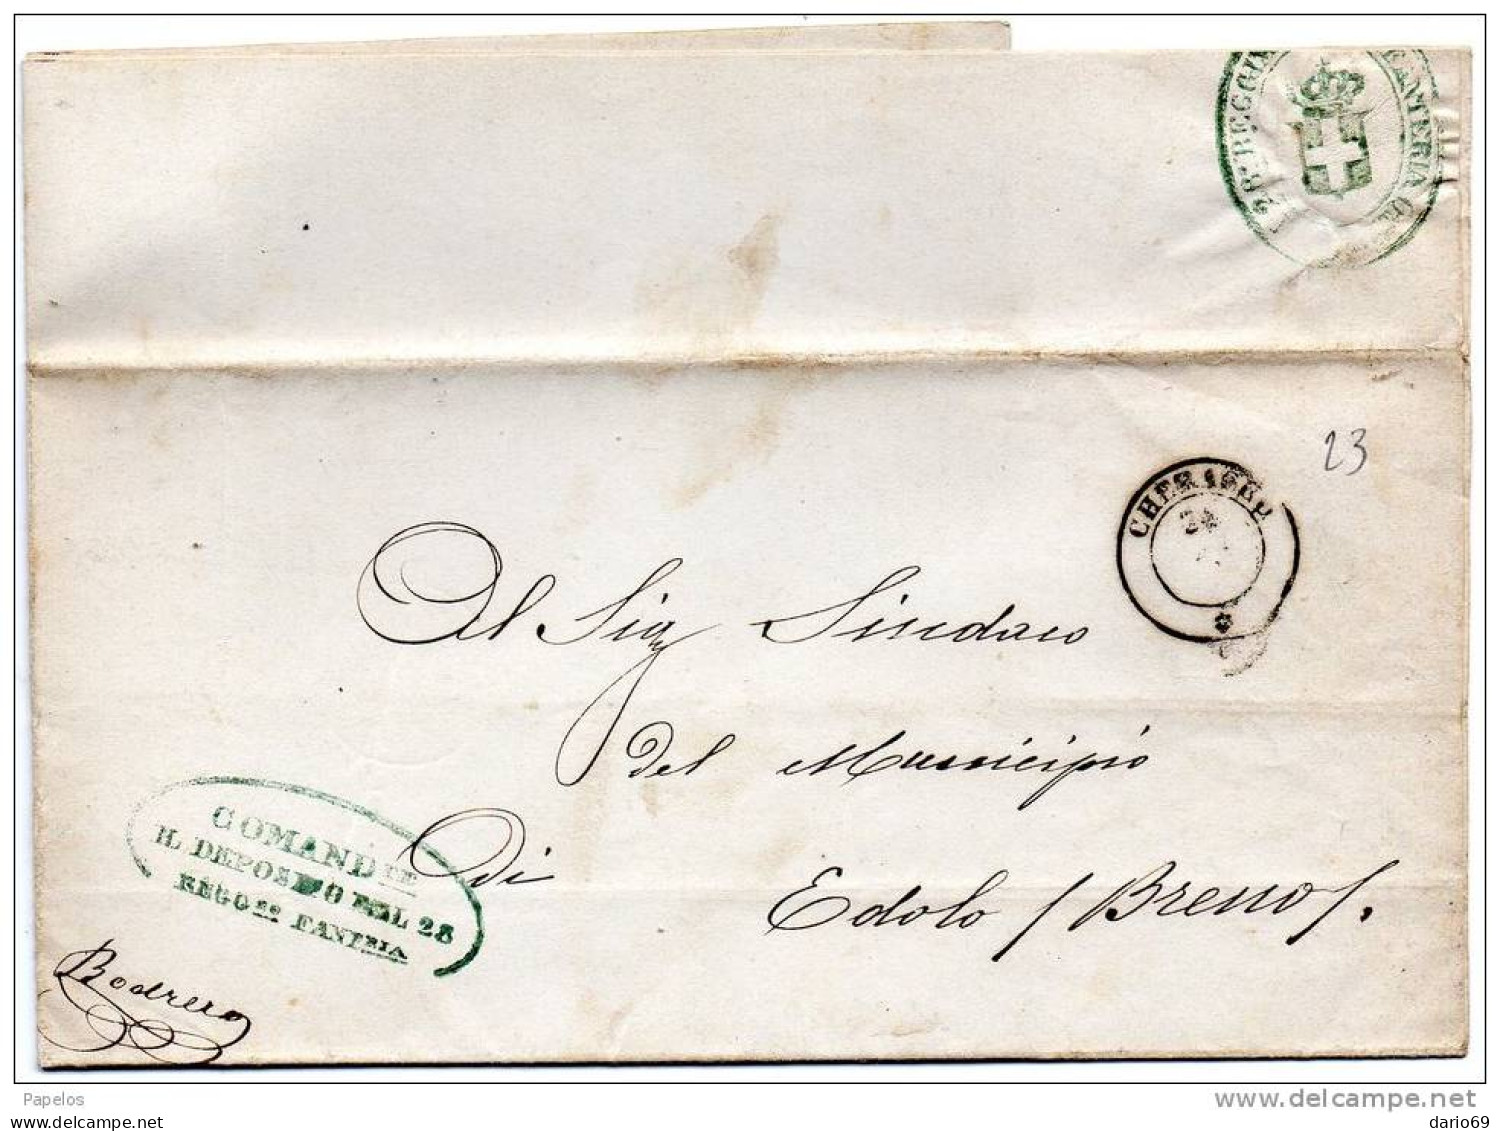 28º REGGIM FANTERIA
23
CHERASCO
24
Al Sig Sindaco
del Municipio
Di
Edolo / Breno /.
COMANDTE
IL DEPOSITO DEL 28
REGGTO FANTRIA
Bodrero
Papelos
www.delcampe.net
(image for) any use
dario69